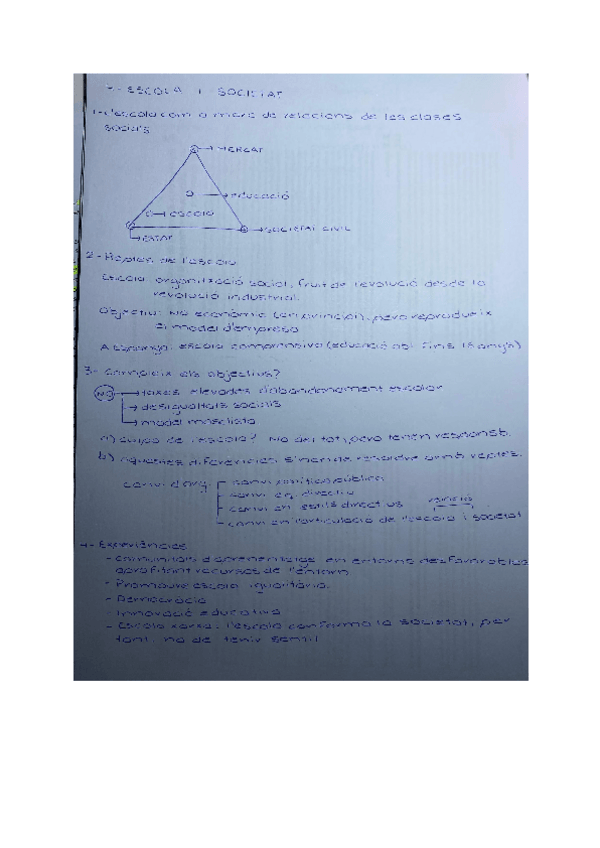 ESCOLA I SOCIETAT
1- L'escola com a marc de relacions de les clases
socials
MERCAT
EDUCACIÓ
ESCOLA
SOCIETAT CIVIL
ESTAT
2- Replan de l'escola
Escola: organització social, fruit de l'evolució desde la
revolució industrial.
Objectiu: No económic (en principi), pero reprodueix
el model d'empresa
escola comprensiva (educació obl. fins 16 anys)
3- Compleix els objectius?
NO → taxes elevades d'abandonament escolar
→ desigualtats socials
→ model masclista
a) culpa de l'escola? No del tot, pero tenen responsb.
b) Aquestes diferencies s'han de resoldre amb reptes.
canvi política pública
canvi eq. directiu
canvi en estils directius
canvi en l'articulació de l'escola i societat
4- Experiències
- comunitats d'aprenentatge en entorns desfavorables
aprofitant recursos de l'entorn.
- Promoure escola igualitària.
- Democràcia
- Innovació educativa
- Escola xarxa: l'escola conforma la societat, per
tant, ha de tenir sentit